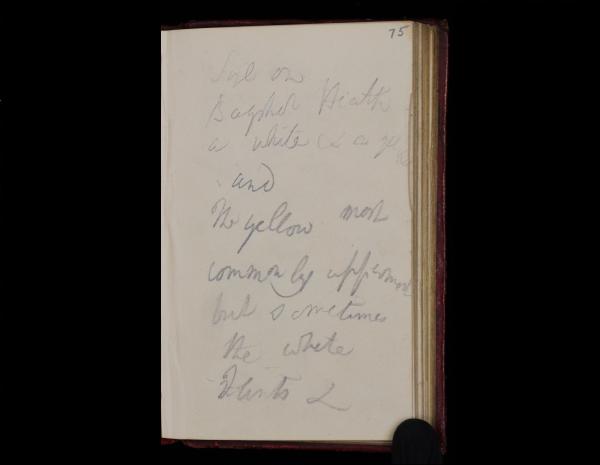 75
Soil on
Bagshot Heath
a white & a
and
The yellow most
commonly uppermost
but sometimes
the white
Flints &